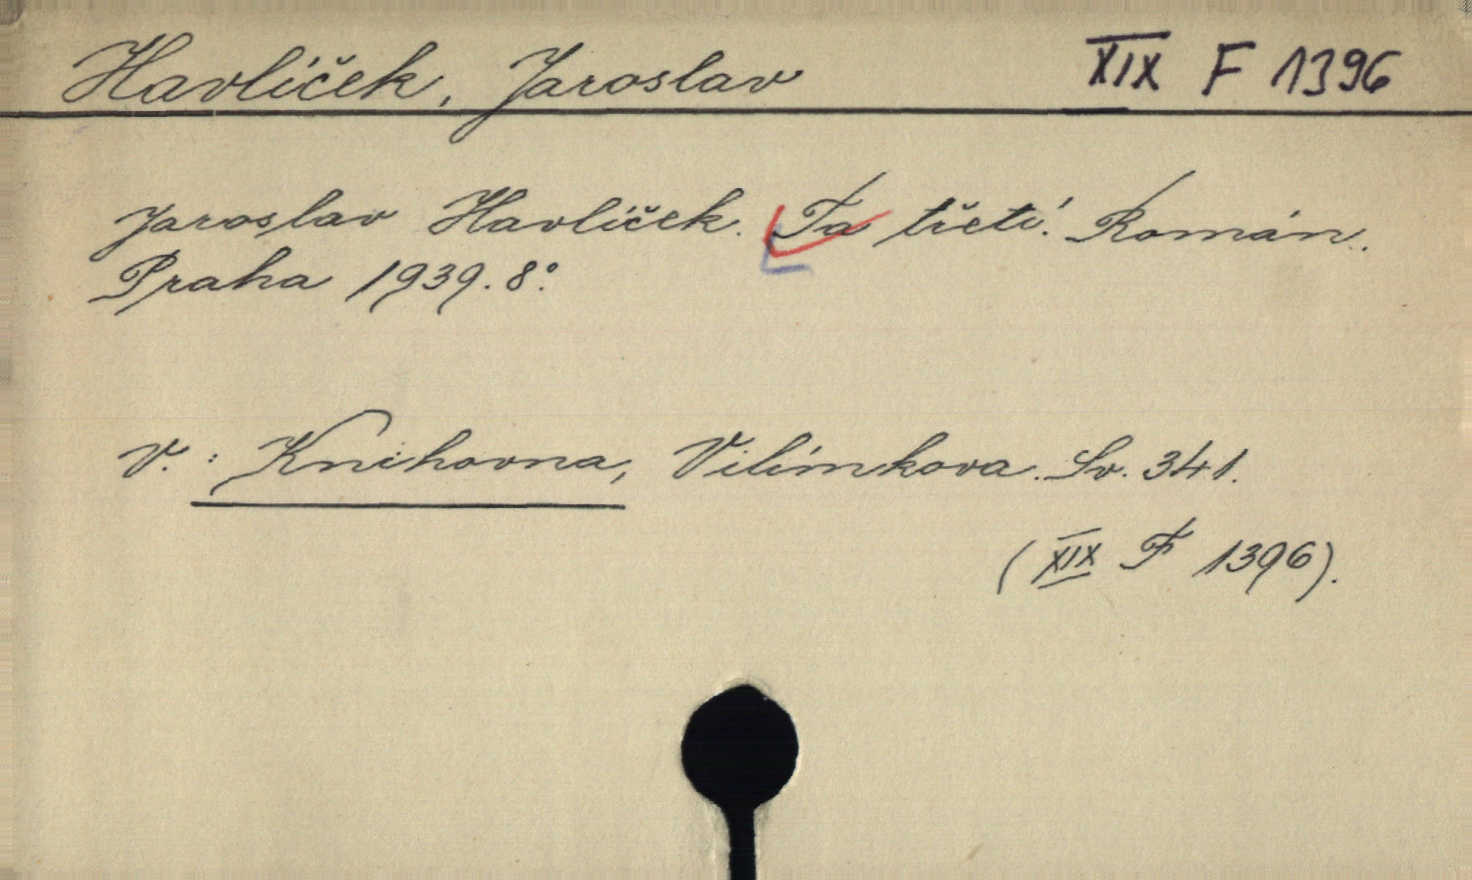 Havlíček, Jaroslav XIX F 1396
Jaroslav Havlíček. Ta třetí. Román.
Praha 1939. 8°.
V.: Knihovna, Vilímkova. Sv. 341.
(XIX F 1396).